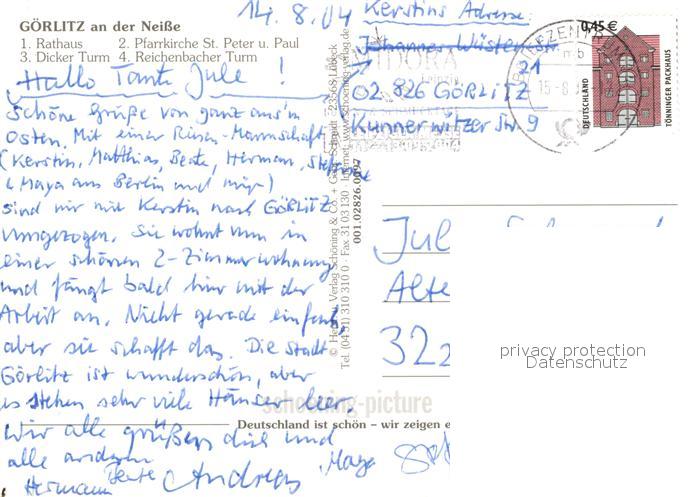 14.8.04
Kerstins Adresse:
GÖRLITZ an der Neiße
1. Rathaus 2. Pfarrkirche St. Peter u. Paul
3. Dicker Turm 4. Reichenbacher Turm
Johannes-Wüsten-Str.
21
02826 GÖRLITZ
Kunnerwitzer Str. 9
0,45 €
DEUTSCHLAND
TÖNNINGER PACKHAUS
BRIEFZENTRUM
Hallo Tante Jule!
Schöne Grüße von ganz aus'm
Osten. Mit einer Riesen-Mannschaft
(Kerstin, Matthias, Beate, Herman, Stefanie
(Maya aus Berlin und mir)
sind wir mit Kerstin nach GÖRLITZ
umgezogen. Sie wohnt nun in
einer schönen 2-Zimmerwohnung
und fängt bald hier mit der
Arbeit an. Nicht gerade einfach,
aber sie schafft das. Die Stadt
Görlitz ist wunderschön, aber
es stehen sehr viele Häuser leer.
Wir alle grüßen dich und
alle anderen
Hermann Beate Andreas, Maya
© Herst. u. Verlag Schöning & Co. + Gebr. Schmidt · 23568 Lübeck
Tel. (04 51) 310 310 0 · Fax 31 03 130 · Internet: www.schoening-verlag.de
001.02826.0097
schoening-picture
Deutschland ist schön – wir zeigen e
Jul
Alte
322
privacy protection
Datenschutz